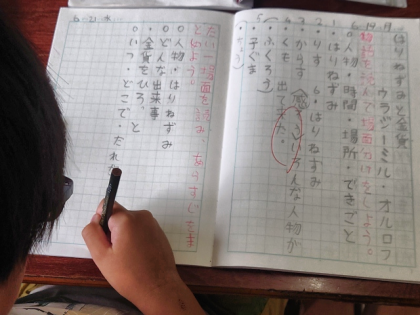 はりねずみと金貨
ウラジーミル・オルロフ
物語を読んで場面分けをしよう。
○人物・時間・場所・できごと
1・はりねずみ
2・りす 6・はりねずみ
3・からす
いろんな人物が
4・くも
出て来た。
・子ぐま
一場面を読み、あらすじをま
とめよう。
○人物・はりねずみ
○どんな出来事
・金貨をひろ
○いつ・どこで・だれ